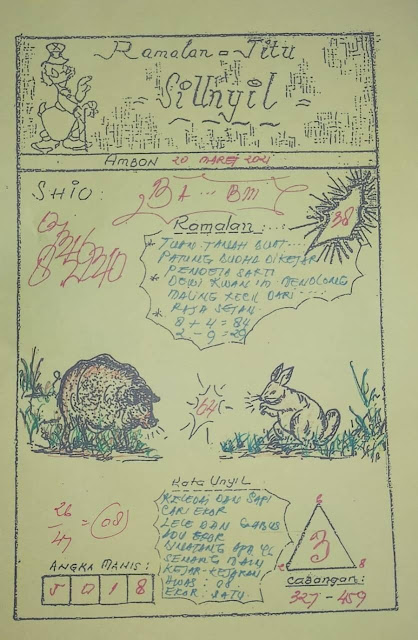 Ramalan = Jitu
SiUnyil
AMBON 20 MAREJ 2021
SHIO:
BA ... BM
38
Ramalan:
* TUKAN TANAH BUAT...
PATUNG BUDHA DIKEJAR
* PENDETA SAKTI
* DEWI KWAN IM MENOLONG
MALING KECIL DARI
* RAJA SETAN
8 + 4 = 84
2 - 9 = 29
64
26
47
= (08)
Kata UnyiL
KELEDAI DAN SAPI
CARI EKOR
LELE DAN GABUS
ADU EKOR
BINATANG APA YG
SENANG MAIN
KEJAR-KEJARAN
AWAS: 08
EKOR: SATU
ANGKA MANIS:
5 0 1 8
3
8
Cabangan:
327 - 459